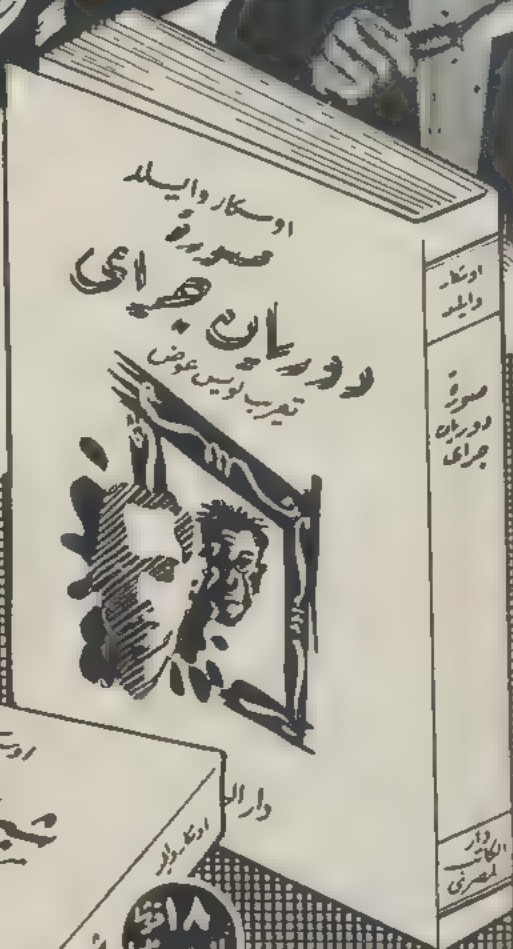 اوسكار وايلد
صورة
دوريان جراى
تعريب لويس عوض
اوسكار
وايلد
صورة
دوريان
جراى
دار
الكاتب
المصرى
دار الـ
اوسكار وايلد
١٨